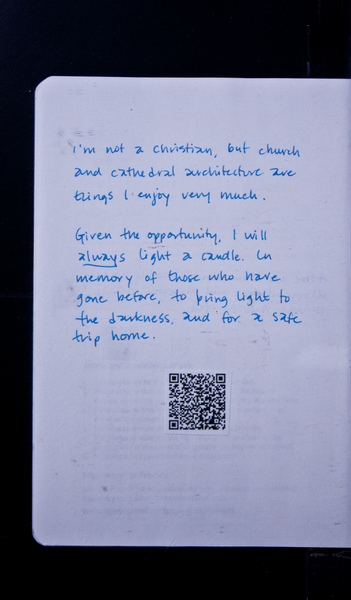 I'm not a christian, but church
and cathedral architecture are
things I enjoy very much.
Given the opportunity, I will
always light a candle. In
memory of those who have
gone before, to bring light to
the darkness, and for a safe
trip home.